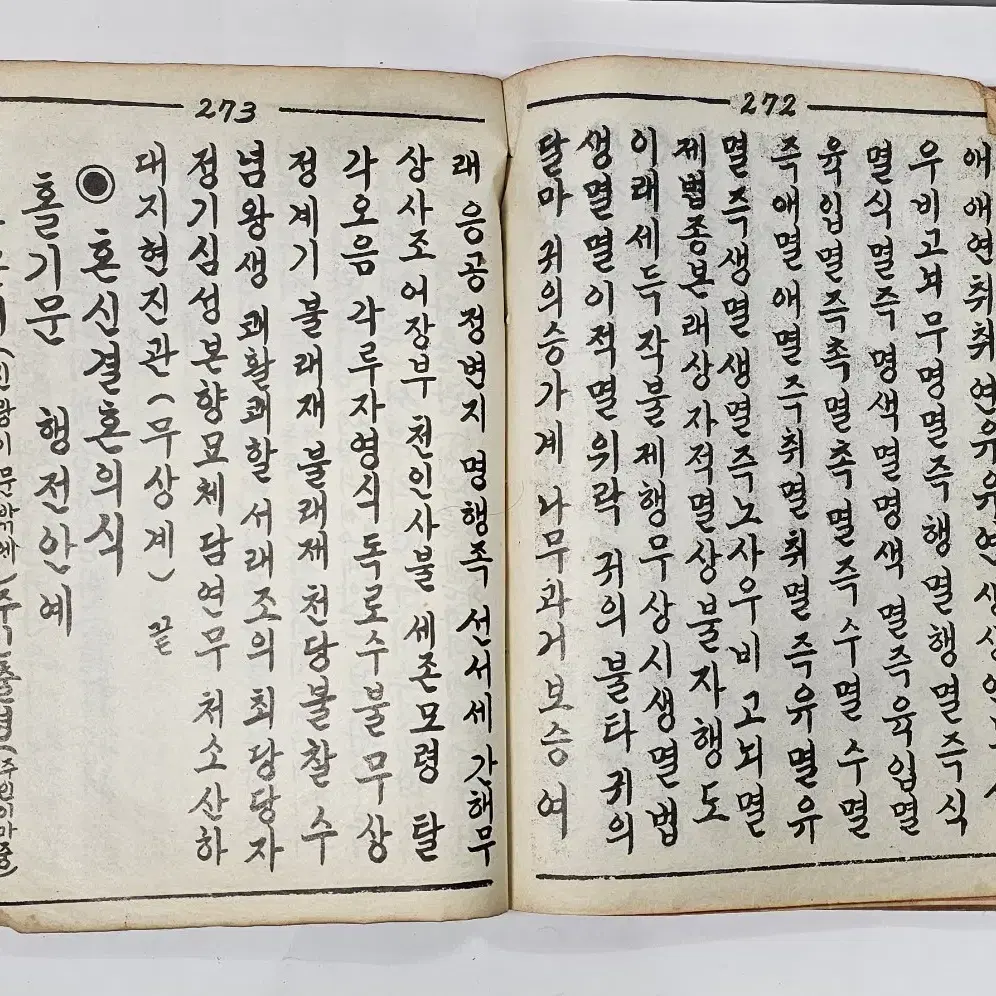 272
애애연취취연유유연생생연
우비고뇌무명멸즉행멸행멸즉식
멸식멸즉 명색멸명색 멸즉육입멸
육입멸즉촉멸촉멸즉수멸수멸
즉애멸애멸즉취멸취멸즉유멸유
멸즉생멸생멸즉노사우비고뇌멸
제법종본래상자적멸상불자행도
이래세득작불제행무상시생멸법
생멸멸이적멸위락 귀의불타귀의
달마 귀의승가계 나무과거보승여
273
래 응공정변지 명행족 선서세간해무
상사조어장부 천인사불 세존모령 탈
각오음 각루자영식독로수불무상
정계기불래재 불래재천당불찰수
념왕생 쾌활쾌할서래조의최당당자
정기심성본향묘체담연무 처소산하
대지현진관(무상계) 끝
◉ 혼신결혼의식
홀기문 행전안예
(신왕이문밖에)주인출영(주인이마중)